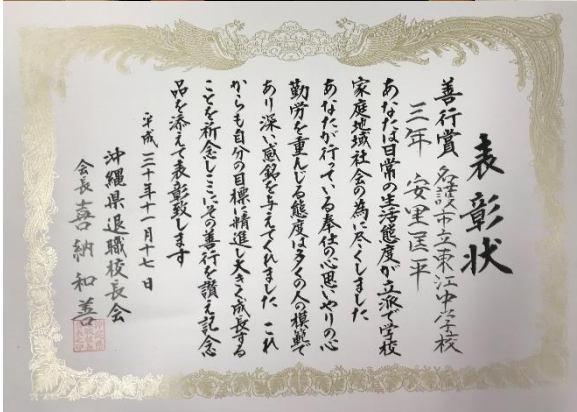 表彰状
善行賞 名護市立東江中学校
三年 安里匡平
あなたは日常の生活態度が立派で学校
家庭地域社会の為に尽くしました
あなたが行っている奉仕の心思いやりの心
勤労を重んじる態度は多くの人の模範で
あり深い感銘を与えてくれました これ
からも自分の目標に精進し大きく成長する
ことを祈念しここにその善行を讃え記念
品を添えて表彰致します
平成三十年十一月十七日
沖縄県退職校長会
会長 喜納和善